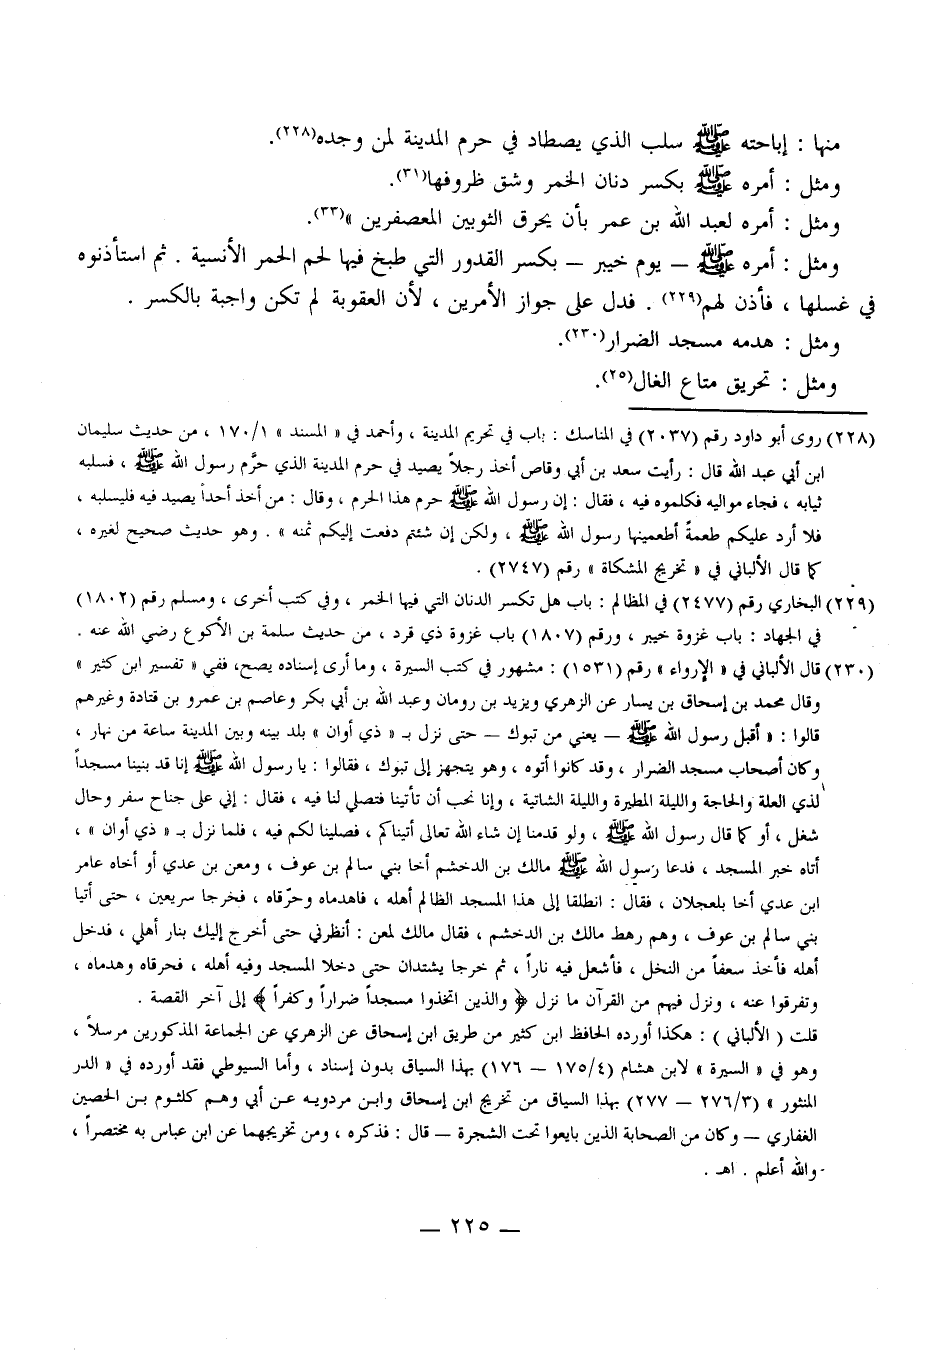 منها : إباحته ﷺ سلب الذي يصطاد في حرم المدينة لمن وجده(٢٢٨).
ومثل : أمره ﷺ بكسر دنان الخمر وشق ظروفها(٣١).
ومثل : أمره لعبد الله بن عمر بأن يحرق الثوبين المعصفرين »(٣٣).
ومثل : أمره ﷺ – يوم خيبر – بكسر القدور التي طبخ فيها لحم الحمر الأنسية . ثم استأذنوه
في غسلها ، فأذن لهم(٢٢٩) . فدل على جواز الأمرين ، لأن العقوبة لم تكن واجبة بالكسر .
ومثل : هدمه مسجد الضرار(٢٣٠).
ومثل : تحريق متاع الغال(٢٥).
(٢٢٨) روى أبو داود رقم (٢٠٣٧) في المناسك : باب في تحريم المدينة ، وأحمد في « المسند » ١٧٠/١ ، من حديث سليمان
ابن أبي عبد الله قال : رأيت سعد بن أبي وقاص أخذ رجلاً يصيد في حرم المدينة الذي حرَّم رسول الله ﷺ ، فسلبه
ثيابه ، فجاء مواليه فكلموه فيه ، فقال : إن رسول الله ﷺ حرم هذا الحرم ، وقال : من أخذ أحداً يصيد فيه فليسلبه ،
فلا أرد عليكم طعمةً أطعمينها رسول الله ﷺ ، ولكن إن شئتم دفعت إليكم ثمنه » . وهو حديث صحيح لغيره ،
كما قال الألباني في « تخريج المشكاة » رقم (٢٧٤٧) .
(٢٢٩) البخاري رقم (٢٤٧٧) في المظالم : باب هل تكسر الدنان التي فيها الخمر ، وفي كتب أخرى ، ومسلم رقم (١٨٠٢)
في الجهاد : باب غزوة خيبر ، ورقم (١٨٠٧) باب غزوة ذي قرد ، من حديث سلمة بن الأكوع رضي الله عنه .
(٢٣٠) قال الألباني في « الإرواء » رقم (١٥٣١) : مشهور في كتب السيرة ، وما أرى إسناده يصح، ففي « تفسير ابن كثير »
وقال محمد بن إسحاق بن يسار عن الزهري ويزيد بن رومان وعبد الله بن أبي بكر وعاصم بن عمرو بن قتادة وغيرهم
قالوا : « أقبل رسول الله ﷺ – يعني من تبوك – حتى نزل بـ « ذي أوان » بلد بينه وبين المدينة ساعة من نهار ،
وكان أصحاب مسجد الضرار ، وقد كانوا أتوه ، وهو يتجهز إلى تبوك ، فقالوا : يا رسول الله ﷺ إنا قد بنينا مسجداً
لذي العلة والحاجة والليلة المطيرة والليلة الشاتية ، وإنا نحب أن تأتينا فتصلي لنا فيه ، فقال : إني على جناح سفر وحال
شغل ، أو كما قال رسول الله ﷺ ، ولو قدمنا إن شاء الله تعالى أتيناكم ، فصلينا لكم فيه ، فلما نزل بـ « ذي أوان » ،
أتاه خبر المسجد ، فدعا رسول الله ﷺ مالك بن الدخشم أخا بني سالم بن عوف ، ومعن بن عدي أو أخاه عامر
ابن عدي أخا بلعجلان ، فقال : انطلقا إلى هذا المسجد الظالم أهله ، فاهدماه وحرّقاه ، فخرجا سريعين ، حتى أتيا
بني سالم بن عوف ، وهم رهط مالك بن الدخشم ، فقال مالك لمعن : أنظرني حتى أخرج إليك بنار أهلي ، فدخل
أهله فأخذ سعفاً من النخل ، فأشعل فيه ناراً ، ثم خرجا يشتدان حتى دخلا المسجد وفيه أهله ، فحرقاه وهدماه ،
وتفرقوا عنه ، ونزل فيهم من القرآن ما نزل ﴿ والذين اتخذوا مسجداً ضراراً وكفراً ﴾ إلى آخر القصة .
قلت ( الألباني ) : هكذا أورده الحافظ ابن كثير من طريق ابن إسحاق عن الزهري عن الجماعة المذكورين مرسلاً ،
وهو في « السيرة » لابن هشام (١٧٥/٤ – ١٧٦) بهذا السياق بدون إسناد ، وأما السيوطي فقد أورده في « الدر
المنثور » (٢٧٦/٣ – ٢٧٧) بهذا السياق من تخريج ابن إسحاق وابن مردويه عن أبي وهم كلثوم بن الحصين
الغفاري – وكان من الصحابة الذين بايعوا تحت الشجرة – قال : فذكره ، ومن تخريجهما عن ابن عباس به مختصراً ،
والله أعلم . اهـ .
– ٢٢٥ –